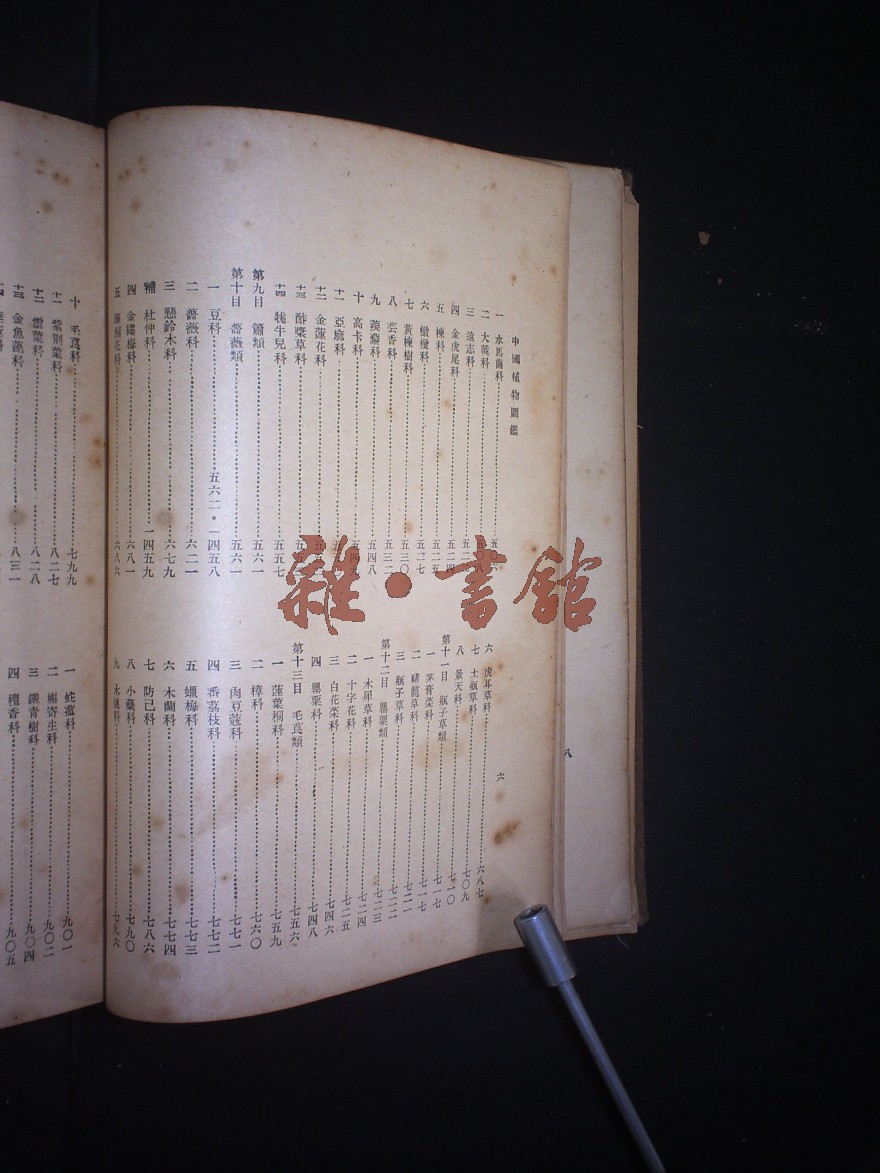 中國植物圖鑑
一 水馬齒科
二 大戟科
三 遠志科
四 金虎尾科
五 楝科
六 橄欖科 五二七
七 黃楝樹科 五三〇
八 芸香科 五三二
九 蒺藜科 五四八
十 高卡科
十一 亞麻科
十二 金蓮花科
十三 酢漿草科
十四 牻牛兒科 五五七
第九目 簫類 五六一
第十目 薔薇類 五六一
一 豆科 五六二・一四五八
二 薔薇科 六二一
三 懸鈴木科 六七九
補 杜仲科 一四五九
四 金縷梅科 六八一
五 六八六
六 虎耳草科 六八七
七 土瓶草科 七〇九
八 景天科 七一〇
第十一目 瓶子草類 七一七
一 茅膏菜科 七一七
二 豬籠草科 七二一
三 瓶子草科 七二二
第十二目 罌粟類 七二三
一 木犀草科 七二四
二 十字花科 七二五
三 白花菜科 七四六
四 罌粟科 七四八
第十三目 毛茛類 七五六
一 蓮葉桐科 七五九
二 樟科 七六〇
三 肉豆蔻科 七七一
四 番荔枝科 七七二
五 蠟梅科 七七三
六 木蘭科 七七四
七 防己科 七八六
八 小蘗科 七九〇
九 木通科 七九六
六
十 毛茛科 七九九
十一 紫荊葉科 八二七
十二 雲葉科 八二八
十三 金魚藻科 八三一
一 蛇菰科 九〇一
二 槲寄生科 九〇二
三 鐵青樹科 九〇四
四 檀香科 九〇五
八
雜・書館